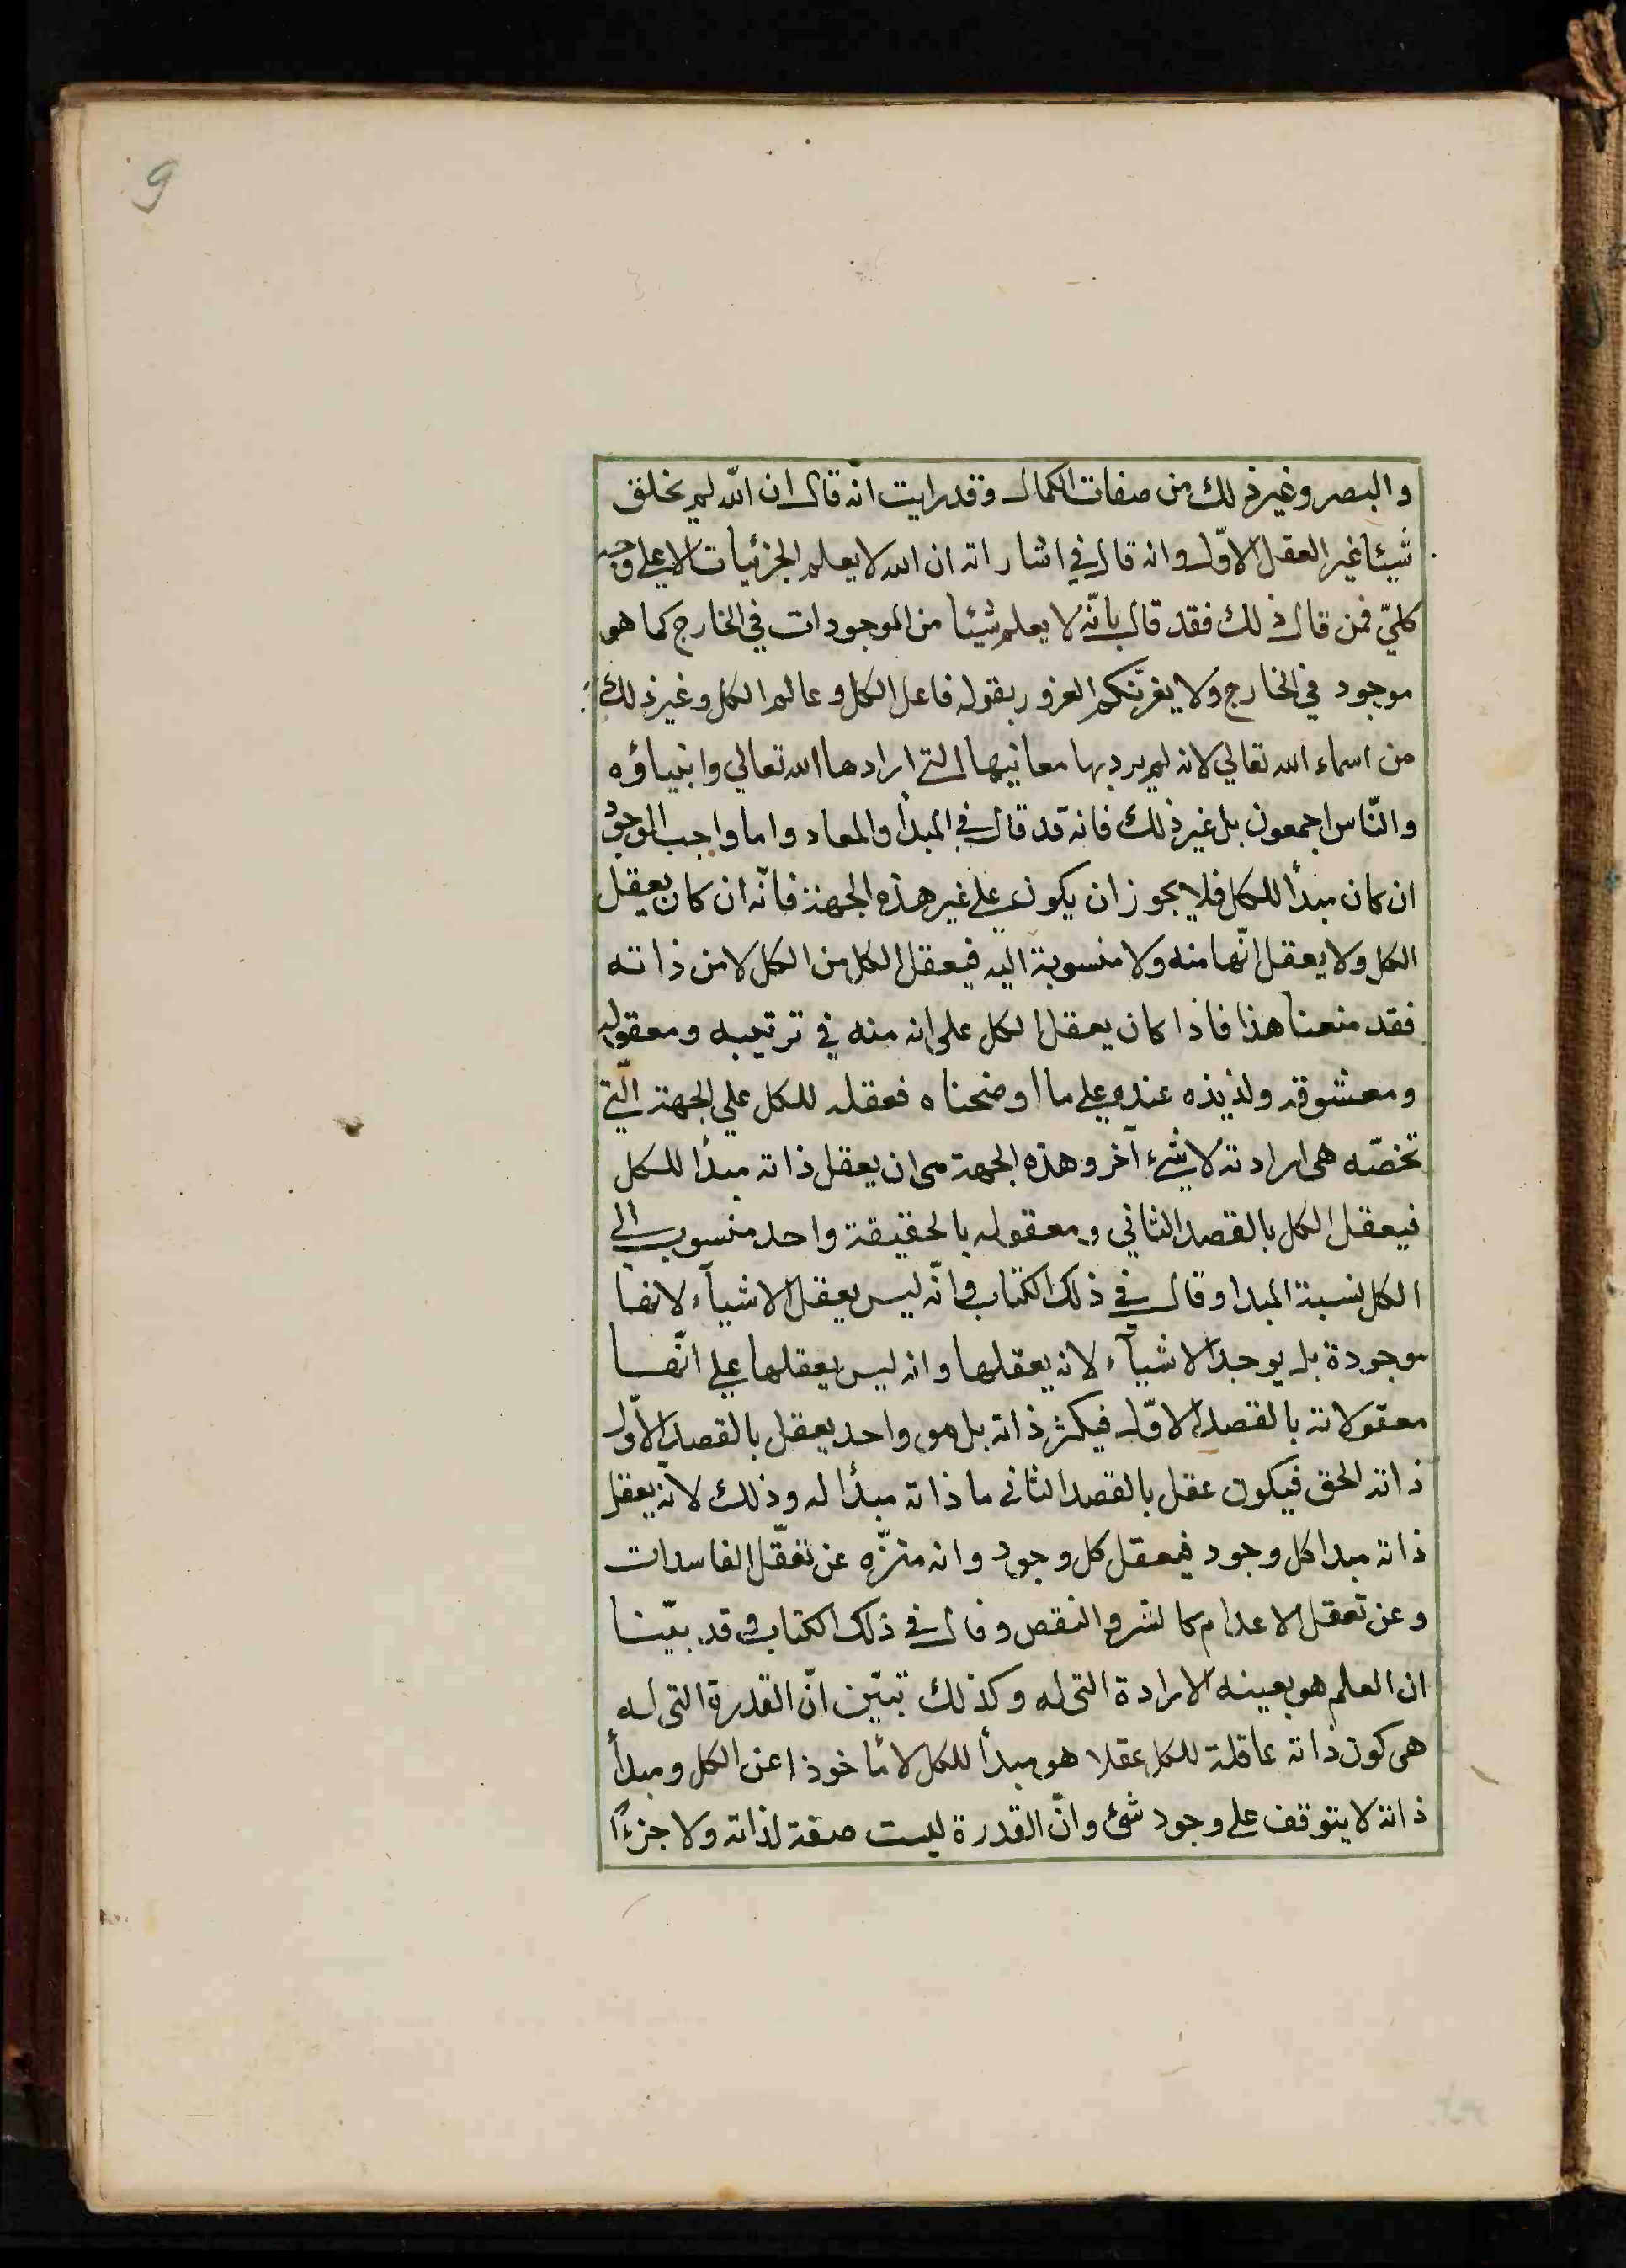 9
والبصر وغير ذلك من صفات الكمال وقد رايت انه قال ان الله لم يخلق
شيئا غير العقل الاوّل وانه قال في اشاراته ان الله لا يعلم الجزئيات الا علي وجه
كليّ فمن قال ذلك فقد قال بانّه لا يعلم شيئا من الموجودات في الخارج كما هو
موجود في الخارج ولا يغرّنكم الغرور بقوله فاعل الكل وعالم الكل وغير ذلك
من اسماء الله تعالي لانه لم يرد بها معانيها التي ارادها الله تعالي وانبياؤه
والنّاس اجمعون بل غير ذلك فانه قد قال في المبدأ والمعاد واما واجب الوجود
ان كان مبدأ للكل فلا يجوز ان يكون علي غير هذه الجهة فانّه ان كان يعقل
الكل ولا يعقل انّها منه ولا منسوبة اليه فيعقل الكل من الكل لا من ذاته
فقد منعنا هذا فاذا كان يعقل الكل على انه منه في ترتيبه ومعقوله
ومعشوقه ولذيذه عنده علي ما اوضحناه فعقله للكل علي الجهة الّتي
تخصّه هى ارادته لا شيء آخر وهذه الجهة هى ان يعقل ذاته مبدأ للكل
فيعقل الكل بالقصد الثاني ومعقوله بالحقيقة واحد منسوب الي
الكل نسبة المبدا وقال في ذلك الكتاب وانّه ليس يعقل الاشيآء لانها
موجودة بل يوجد الاشيآء لانه يعقلها وانه ليس يعقلها علي انّها
معقولاته بالقصد الاوّل فيكثر ذاته بل هو واحد يعقل بالقصد الاوّل
ذاته الحق فيكون عقل بالقصد الثانى ما ذاته مبدأ له وذلك لانّه يعقل
ذاته مبدا كل وجود فيعقل كل وجود وانه منزّه عن تعقّل الفاسدات
وعن تعقل الاعدام كالشر والنقص وقال في ذلك الكتاب وقد بيّنا
ان العلم هو بعينه الارادة التى له وكذلك تبيّن انّ القدرة التى له
هى كون ذاته عاقلة للكل عقلا هو مبدأ للكل لا مأخوذا عن الكل ومبدأ
ذاته لا يتوقف على وجود شئ وانّ القدرة ليست صفة لذاته ولا جزءًا